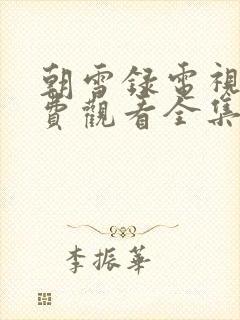 朝雪録電視
費觀看全集
李振華